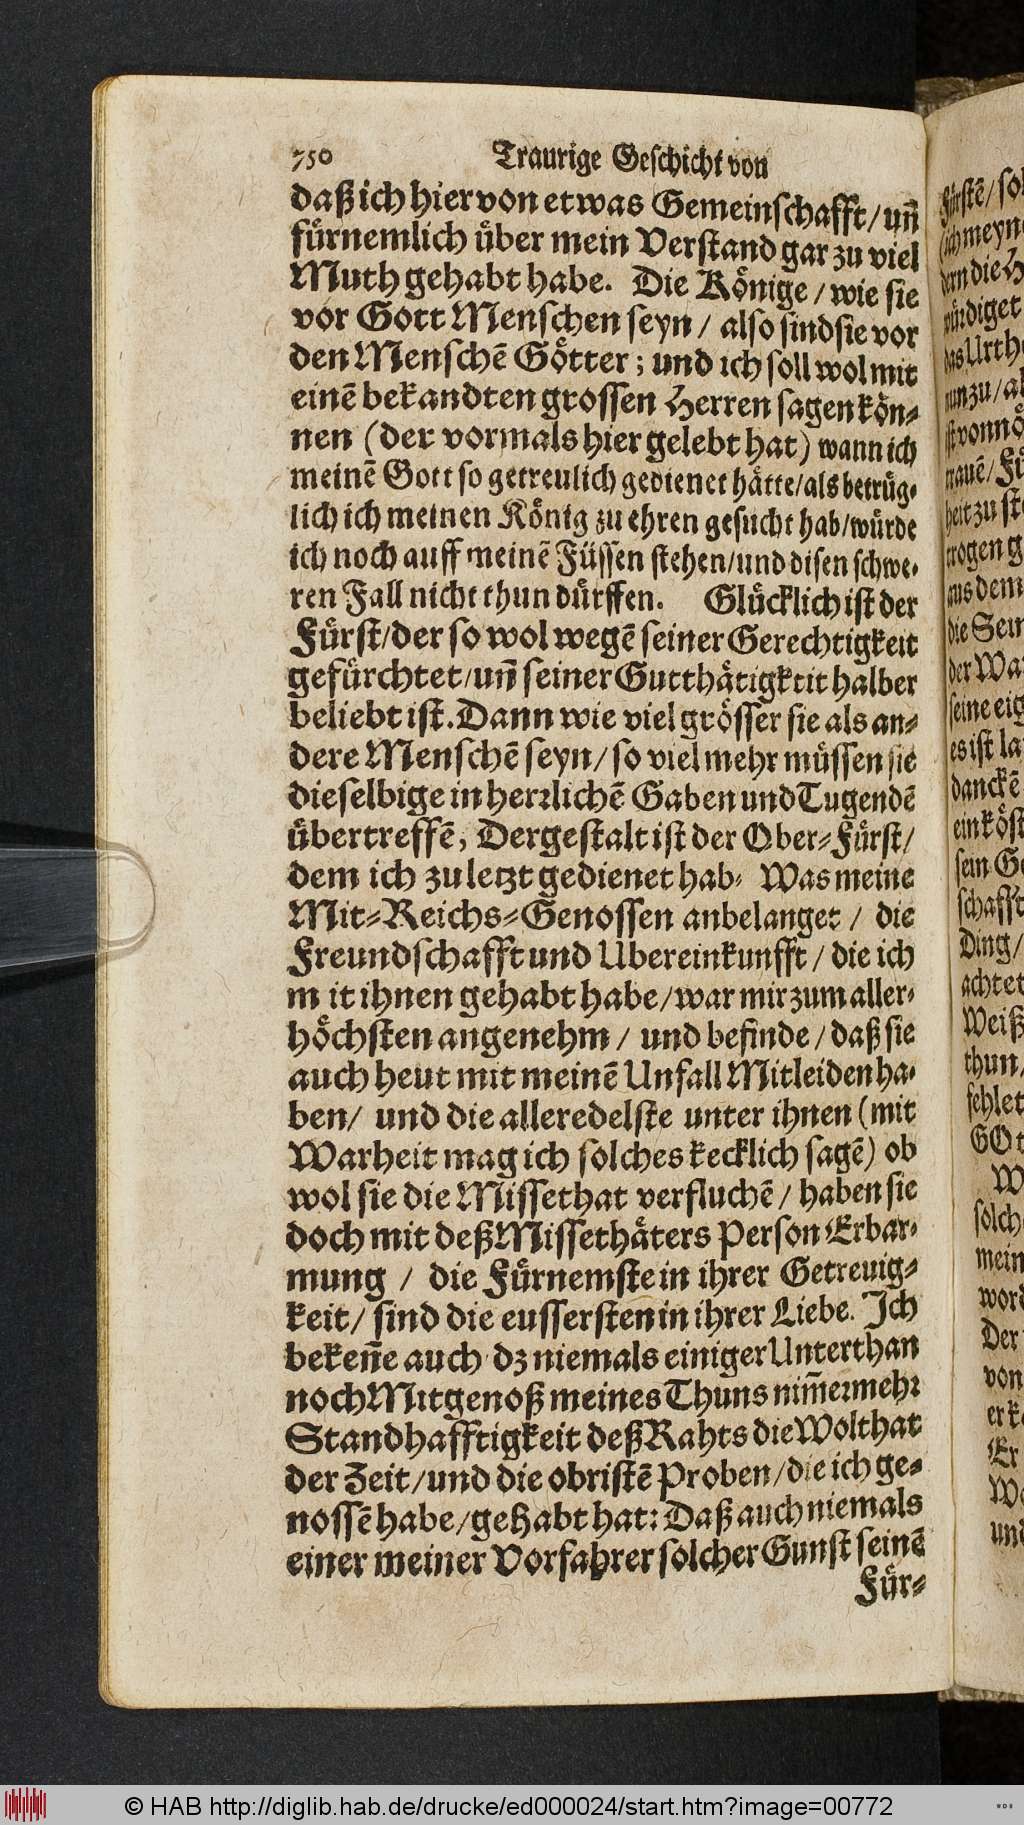 750 Traurige Geschicht von
daß ich hiervon etwas Gemeinschafft/ uñ
fürnemlich über mein Verstand gar zu viel
Muth gehabt habe. Die Könige/ wie sie
vor Gott Menschen seyn/ also sind sie vor
den Menschẽ Götter; und ich soll wol mit
einẽ bekandten grossen Herren sagen kön-
nen (der vormals hier gelebt hat) wann ich
meinẽ Gott so getreulich gedienet hätte/ als betrüg-
lich ich meinen König zu ehren gesucht hab/ würde
ich noch auff meinẽ Füssen stehen/ und disen schwe-
ren Fall nicht thun dürffen. Glücklich ist der
Fürst/ der so wol wegẽ seiner Gerechtigkeit
gefürchtet/ uñ seiner Gutthätigktit halber
beliebt ist. Dann wie viel grösser sie als an-
dere Menschẽ seyn/ so viel mehr müssen sie
dieselbige in herrlichẽ Gaben und Tugendẽ
übertreffẽ, Dergestalt ist der Ober-Fürst/
dem ich zu letzt gedienet hab. Was meine
Mit-Reichs-Genossen anbelanget/ die
Freundschafft und Ubereinkunfft/ die ich
m it ihnen gehabt habe/ war mir zum aller-
höchsten angenehm/ und befinde/ daß sie
auch heut mit meinẽ Unfall Mitleiden ha-
ben/ und die alleredelste unter ihnen (mit
Warheit mag ich solches kecklich sagẽ) ob
wol sie die Missethat verfluchẽ/ haben sie
doch mit deß Missethäters Person Erbar-
mung/ die Fürnemste in ihrer Getreuig-
keit/ sind die eussersten in ihrer Liebe. Ich
bekeñe auch dz niemals einiger Unterthan
noch Mitgenoß meines Thuns nim̃ermehr
Standhafftigkeit deß Rahts die Wolthat
der Zeit/ und die obristẽ Proben/ die ich ge-
nossẽ habe/ gehabt hat: Daß auch niemals
einer meiner Vorfahrer solcher Gunst seinẽ
Für-
Fürstẽ/
(ich meyn
würdiget
das Urth
nun zu/
ist vonnö
heit zu
aus dem
der Wa
seine eig
es ist la
danckẽ
ein köst
sein
schafft
Ding/
achtet
Weiß
thun/
fehlet
solch
mein
word
Der
von
Er
und
© HAB http://diglib.hab.de/drucke/ed000024/start.htm?image=00772